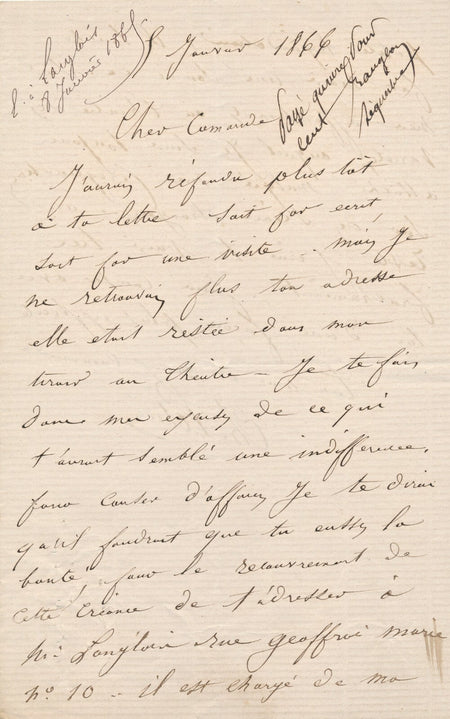 E. à Langlois
8 Janvier 1866
5 Janvier 1866
Payé quinze
cent
pour
Cher Camarade
J'aurais répondu plus tôt
à ta lettre soit par ecrit,
soit par une visite. mais je
ne retrouvais plus ton adresse
elle etait restée dans mon
tiroir au théâtre _ Je te fais
donc mes excuses de ce qui
t'aurait semblé une indifférence,
pour causer d'affaires Je te dirai
qu'il faudrait que tu eusses la
bonté, pour le recouvrement de
cette créance de t'adresser à
Mr Langlois rue geoffroi marie
no. 10 _ il est chargé de ma